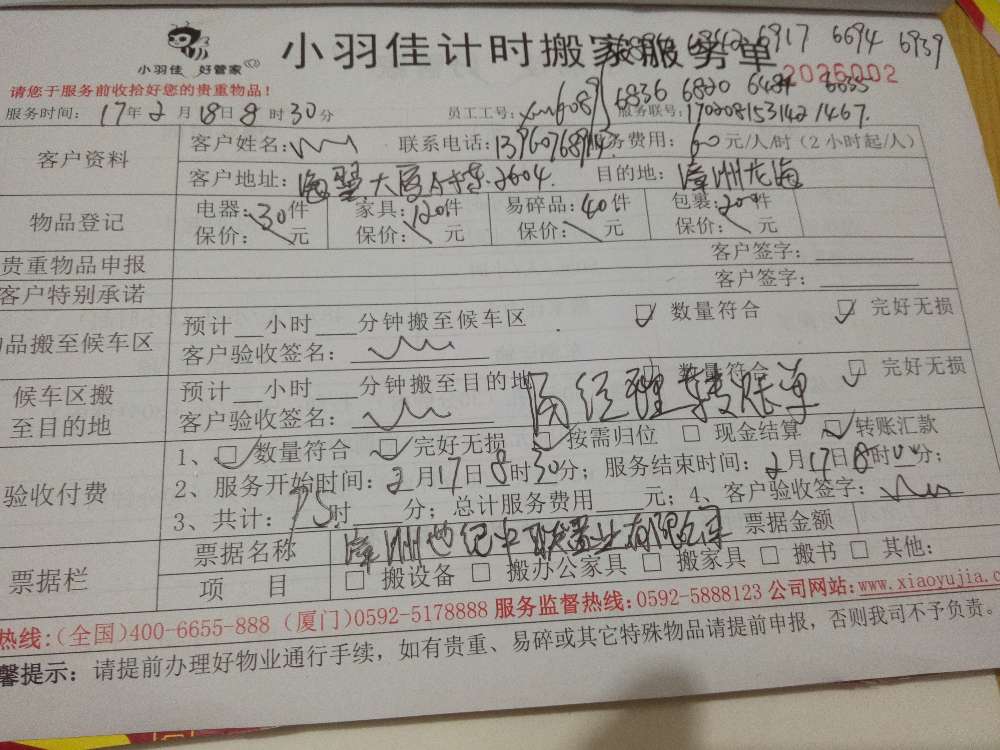 小羽佳计时搬家服务单 6917 6694 6939
小羽佳 好管家
请您于服务前收拾好您的贵重物品! 6836 6820 6484 6835
服务时间: 17年2月18日8时30分 员工工号: 服务联号:170208153142 1467.
客户资料 客户姓名: 联系电话: 服务费用: 60元/人/时(2小时起/人)
客户地址: 海翼大厦A栋.2604. 目的地: 漳州龙海
物品登记 电器:30件 家具:120件 易碎品:40件 包裹:200件
保价: 元 保价: 元 保价: 元 保价: 元
贵重物品申报 客户签字:
客户特别承诺 客户签字:
品搬至候车区 预计__小时___分钟搬至候车区 数量符合 完好无损
客户验收签名:
候车区搬至目的地 预计__小时___分钟搬至目的地 数量符合 完好无损
客户验收签名: 经理转账单
验收付费 1、数量符合 完好无损 按需归位 现金结算 转账汇款
2、服务开始时间:2月17日8时30分;服务结束时间:2月17日8时00分;
3、共计:75时 分;总计服务费用 元;4、客户验收签字:
票据栏 票据名称 漳州世纪中联置业有限公司 票据金额
项 目 搬设备 搬办公家具 搬家具 搬书 其他:
热线:(全国)400-6655-888 (厦门)0592-5178888 服务监督热线:0592-5888123 公司网站:www.xiaoyujia.c
馨提示: 请提前办理好物业通行手续,如有贵重、易碎或其它特殊物品请提前申报,否则我司不予负责。